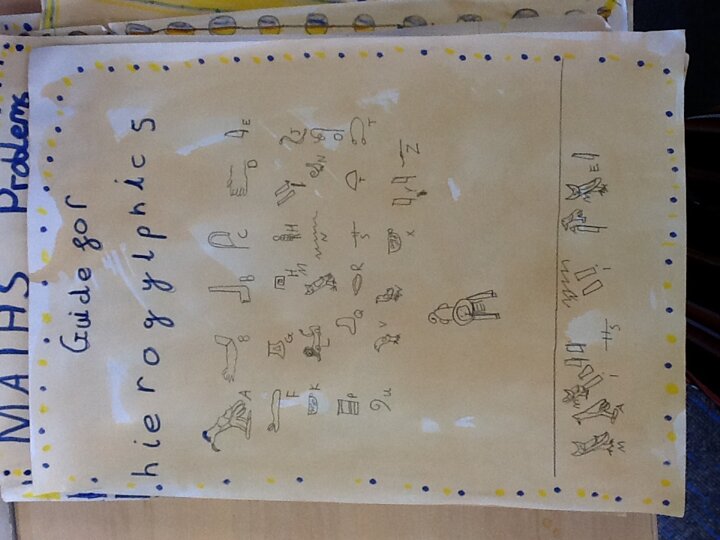 MATHS Problems
Guide for
hierogylphics
A B B C D E
F G H H I J
K L M N N O
P Q R S T T
U V W X Y Z